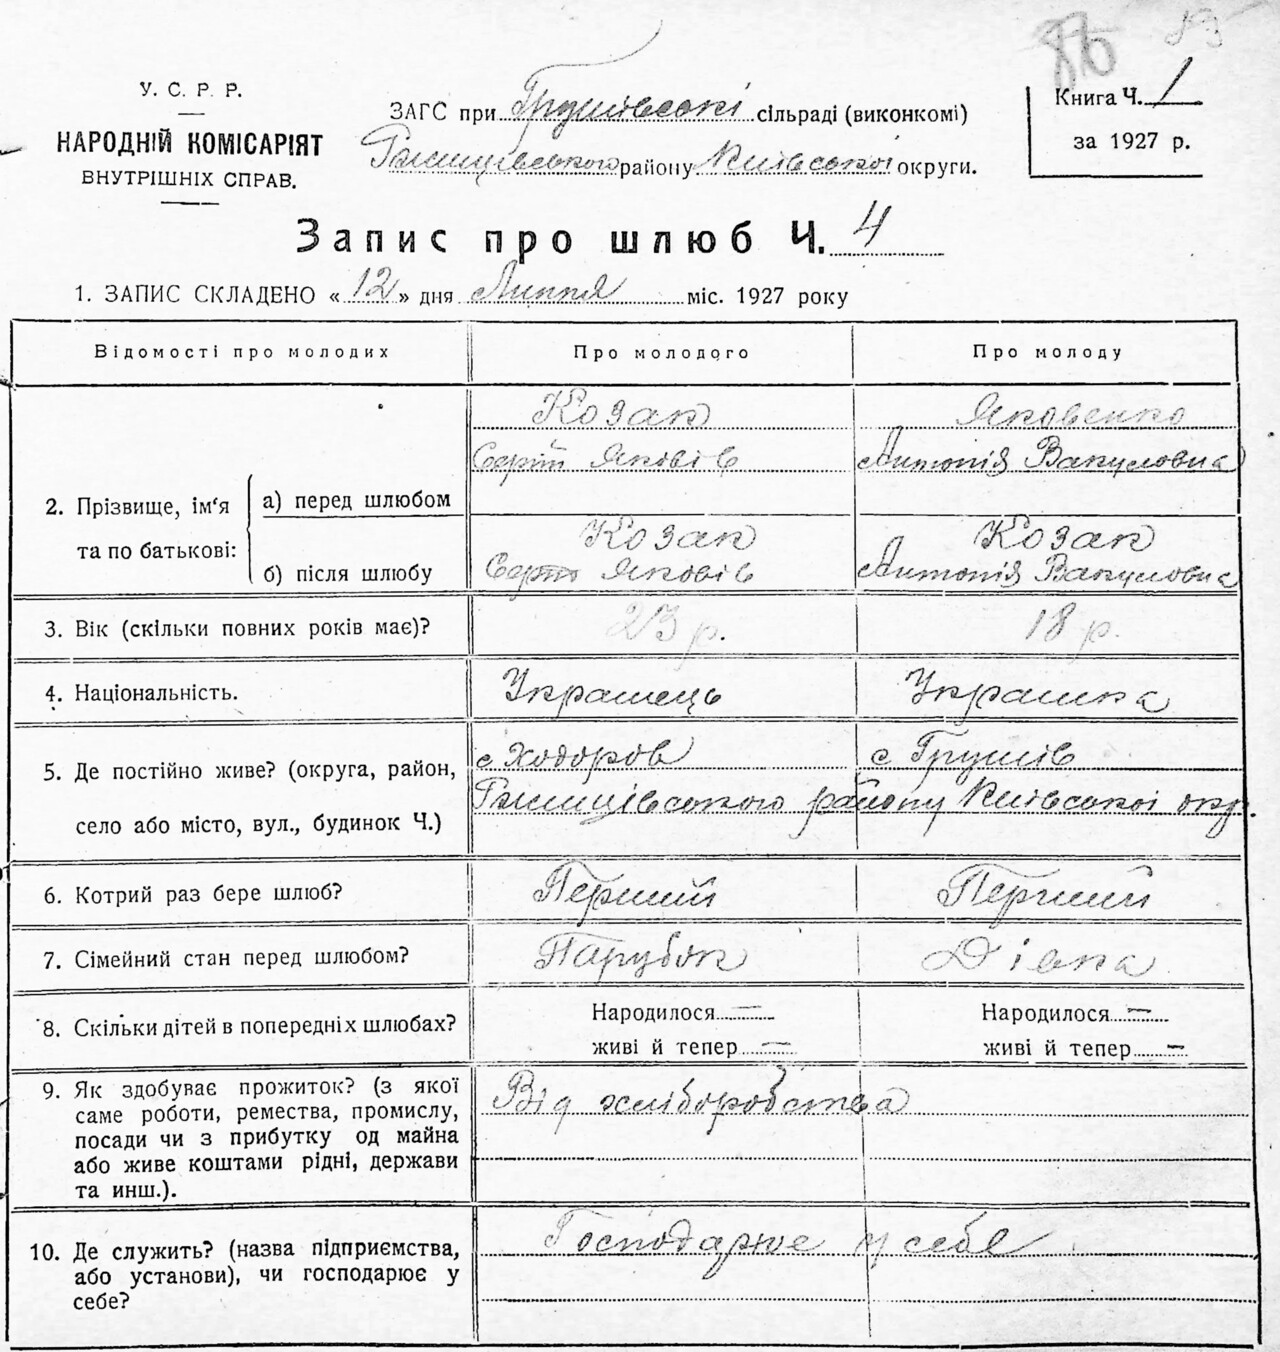 86 85
У. С. Р. Р.
НАРОДНІЙ КОМІСАРІЯТ
ВНУТРІШНІХ СПРАВ.
ЗАГС при Грушівські сільраді (виконкомі)
Ржищівського району Київської округи.
Книга Ч. 1
за 1927 р.
Запис про шлюб Ч. 4
1. ЗАПИС СКЛАДЕНО «12» дня Липня міс. 1927 року
Відомості про молодих Про молодого Про молоду
2. Прізвище, ім'я та по батькові:
а) перед шлюбом
Козак
Сергій Яковів
Яковенко
Антонія Вакуловна
б) після шлюбу
Козак
Сергій Яковів
Козак
Антонія Вакуловна
3. Вік (скільки повних років має)? 23 р. 18 р.
4. Національність. Українець Українка
5. Де постійно живе? (округа, район,
село або місто, вул., будинок Ч.)
с Ходоров с Грушів
Ржищівського району Київської окр.
6. Котрий раз бере шлюб? Перший Перший
7. Сімейний стан перед шлюбом? Парубок Дівка
8. Скільки дітей в попередніх шлюбах?
Народилося — Народилося —
живі й тепер — живі й тепер —
9. Як здобуває прожиток? (з якої
саме роботи, ремества, промислу,
посади чи з прибутку од майна
або живе коштами рідні, держави
та инш.).
Від хліборобства
10. Де служить? (назва підприємства,
або установи), чи господарює у
себе?
Господарює у себе